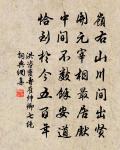 嶺右山川間出賢
開元宰相最居
中間不數餘安道
恰到於今五百年
洪咨夔壽崔帥卿七絕
詞典網集